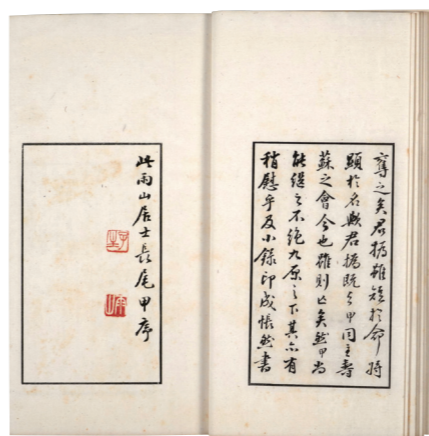 奪之矣君撝雖短於命將
顯於名歟君撝既与甲同主壽
蘇之會今也雖則亡矣然甲尚
能繼之不絕九原之下其亦有
稍慰乎及小錄印成悵然書
此雨山居士長尾甲序